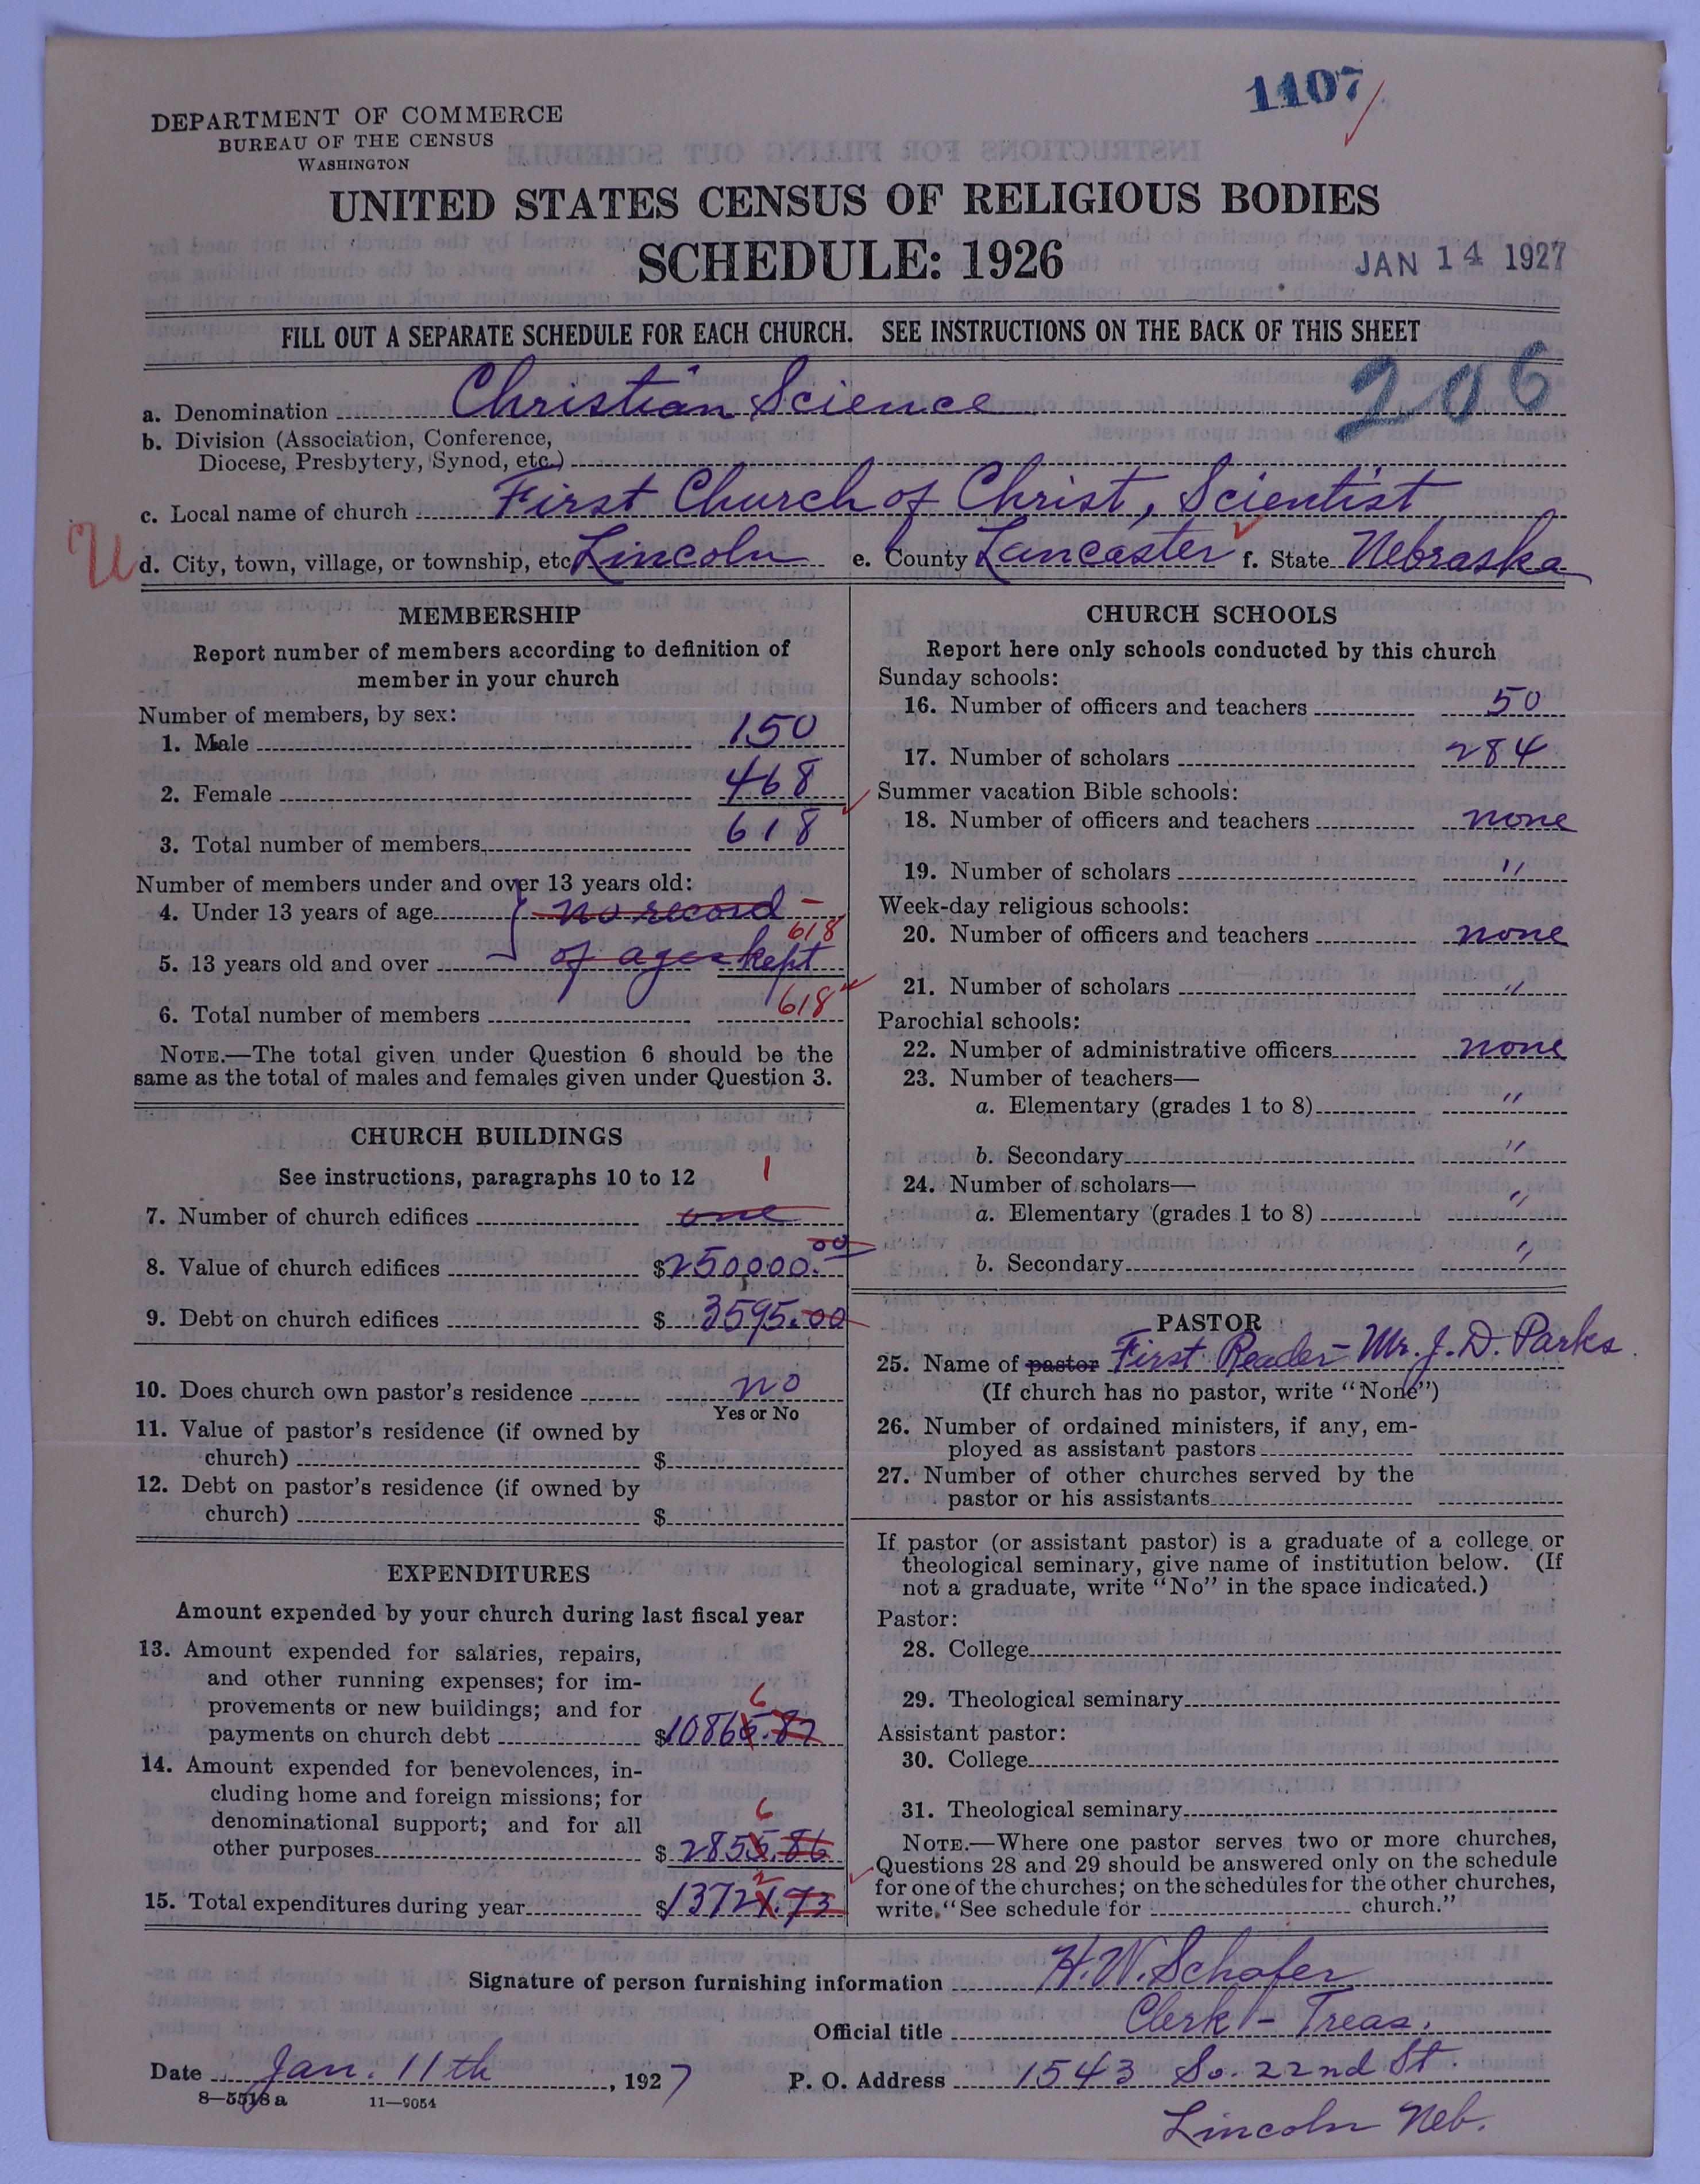 1107
DEPARTMENT OF COMMERCE
BUREAU OF THE CENSUS
WASHINGTON
UNITED STATES CENSUS OF RELIGIOUS BODIES
SCHEDULE: 1926
JAN 14 1927
FILL OUT A SEPARATE SCHEDULE FOR EACH CHURCH. SEE INSTRUCTIONS ON THE BACK OF THIS SHEET
206
a. Denomination Christian Science
b. Division (Association, Conference,
Diocese, Presbytery, Synod, etc.)
c. Local name of church First Church of Christ, Scientist
U
d. City, town, village, or township, etc. Lincoln e. County Lancaster f. State Nebraska
MEMBERSHIP
Report number of members according to definition of
member in your church
Number of members, by sex:
1. Male 150
2. Female 468
3. Total number of members 618
Number of members under and over 13 years old:
4. Under 13 years of age no record -
618
5. 13 years old and over of ages kept
6. Total number of members 618
NOTE.—The total given under Question 6 should be the
same as the total of males and females given under Question 3.
CHURCH BUILDINGS
See instructions, paragraphs 10 to 12
1
7. Number of church edifices one
8. Value of church edifices $250,000.00
9. Debt on church edifices $3595.00
10. Does church own pastor's residence no
Yes or No
11. Value of pastor's residence (if owned by
church) $
12. Debt on pastor's residence (if owned by
church) $
EXPENDITURES
Amount expended by your church during last fiscal year
13. Amount expended for salaries, repairs,
and other running expenses; for im-
provements or new buildings; and for
6
payments on church debt $10865.87
14. Amount expended for benevolences, in-
cluding home and foreign missions; for
denominational support; and for all
6
other purposes $2855.86
2
15. Total expenditures during year $13721.73
CHURCH SCHOOLS
Report here only schools conducted by this church
Sunday schools:
16. Number of officers and teachers 50
17. Number of scholars 284
Summer vacation Bible schools:
18. Number of officers and teachers none
19. Number of scholars "
Week-day religious schools:
20. Number of officers and teachers none
21. Number of scholars "
Parochial schools:
22. Number of administrative officers none
23. Number of teachers—
a. Elementary (grades 1 to 8) "
b. Secondary "
24. Number of scholars—
a. Elementary (grades 1 to 8) "
b. Secondary "
PASTOR
25. Name of pastor First Reader - Mr. J. D. Parks
(If church has no pastor, write "None")
26. Number of ordained ministers, if any, em-
ployed as assistant pastors
27. Number of other churches served by the
pastor or his assistants
If pastor (or assistant pastor) is a graduate of a college or
theological seminary, give name of institution below. (If
not a graduate, write "No" in the space indicated.)
Pastor:
28. College
29. Theological seminary
Assistant pastor:
30. College
31. Theological seminary
NOTE.—Where one pastor serves two or more churches,
Questions 28 and 29 should be answered only on the schedule
for one of the churches; on the schedules for the other churches,
write "See schedule for church."
Signature of person furnishing information H. W. Schafer
Official title Clerk - Treas.
Date Jan. 11th, 1927 P. O. Address 1543 So. 22nd St.
8—5518 a 11—9054
Lincoln Neb.